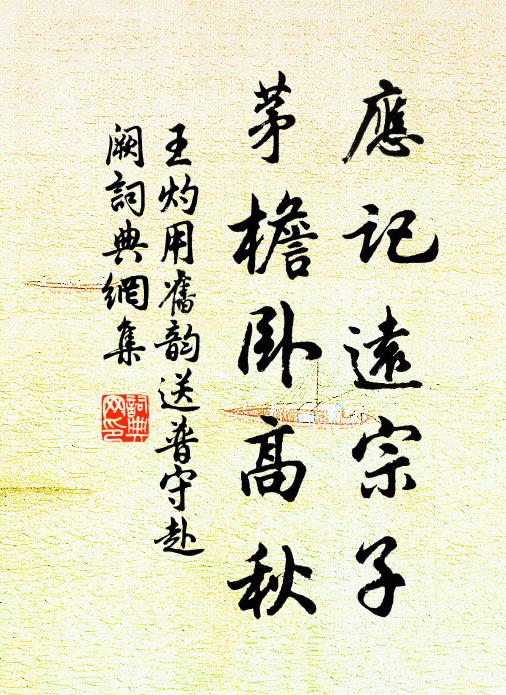 應記遠宗子
茅檐卧高秋
王灼用舊韵送普守赴
闕詞典網集
詞典网印